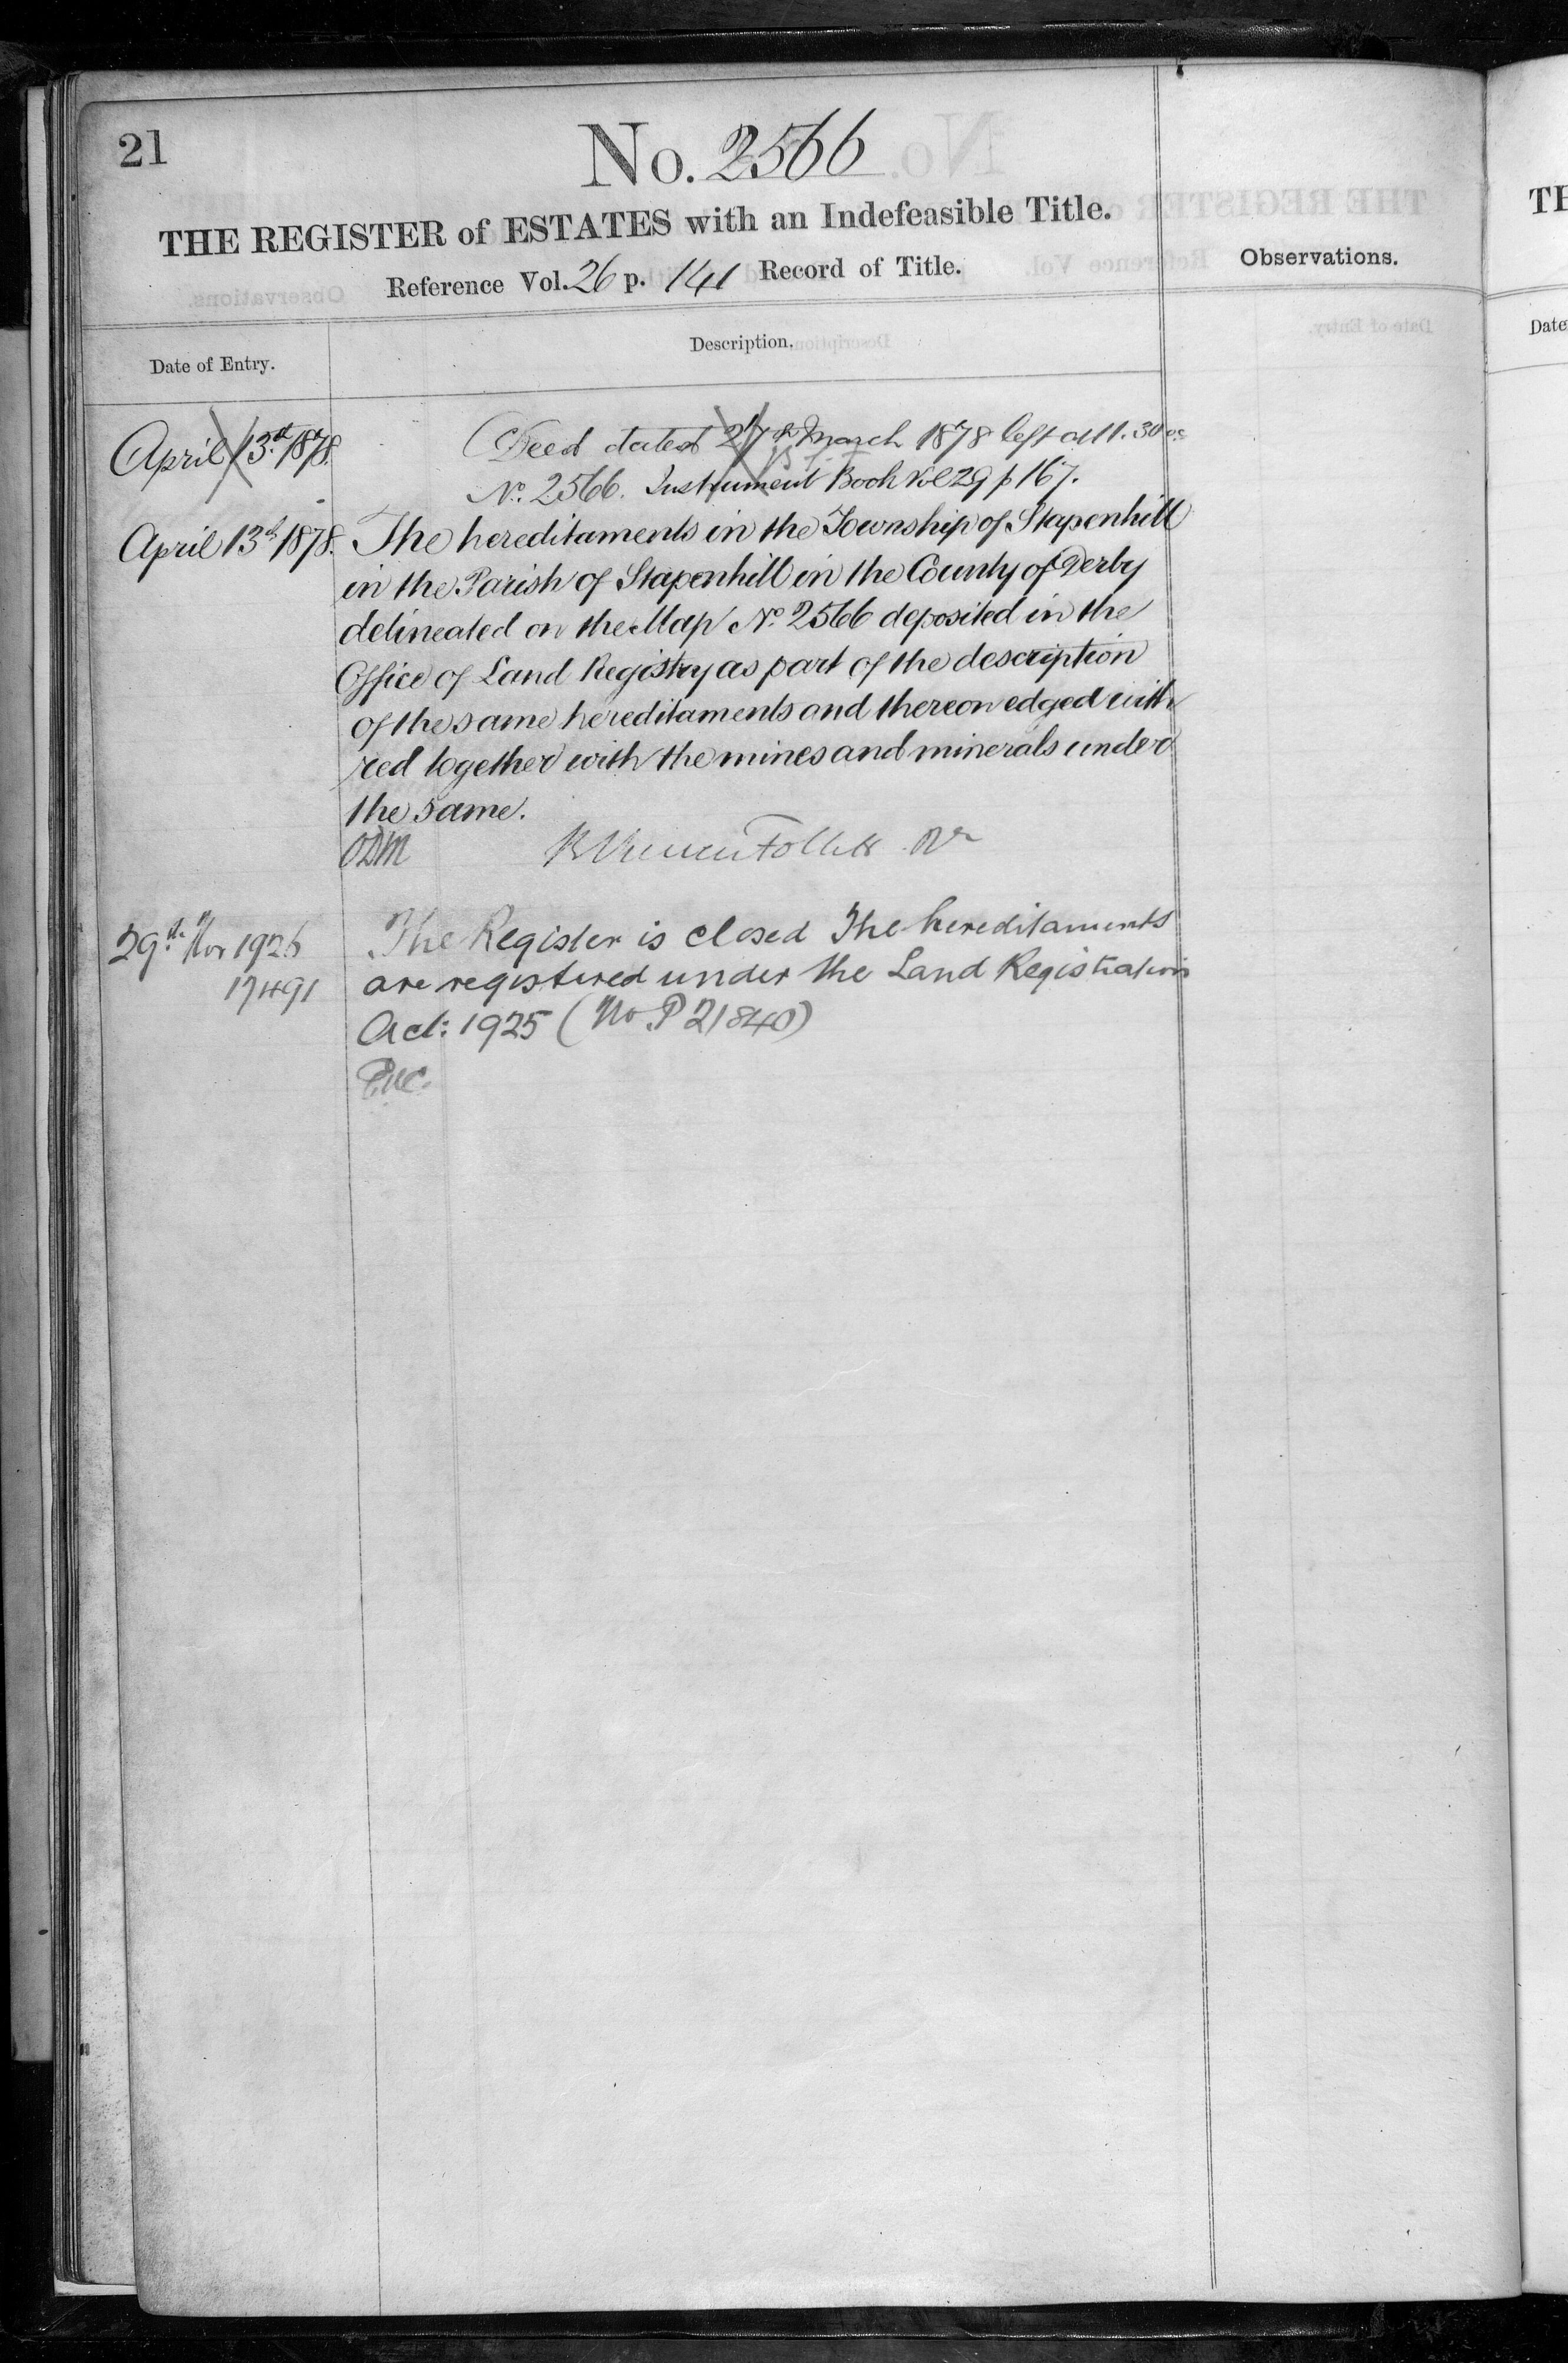 21
No. 2566
THE REGISTER of ESTATES with an Indefeasible Title.
Reference Vol. 26 p. 141 Record of Title.
Observations.
Date of Entry.
Description.
April 13th 1878.
Deed dated 27th March 1878 left at 11.30
No. 2566. Instrument Book Vol 29 p 167.
April 13th 1878.
The hereditaments in the Township of Stapenhill
in the Parish of Stapenhill in the County of Derby
delineated on the Map No. 2566 deposited in the
Office of Land Registry as part of the description
of the same hereditaments and thereon edged with
red together with the mines and minerals under
the same.
ODM
Follett
29th Nov 1926
17491
The Register is closed The hereditaments
are registered under the Land Registration
Act: 1925 (No P 21840)
TH
Date